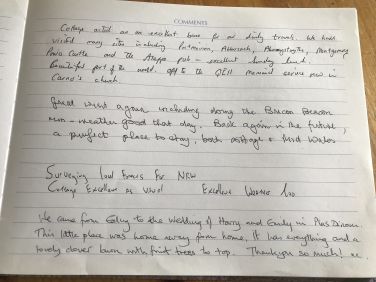 COMMENTS
Cottage acted as an excellent base for our daily travels. We have
visited many sites including Portmeirion, Aberaeron, Aberystwyth, Montgomery
Powis Castle and the Aleppo pub - excellent Sunday lunch.
Beautiful part of the world. Off to the QEII Memorial service now in
Carno's church.
Great visit again including doing the Brecon Beacon
run - weather good that day. Back again in the future,
a perfect place to stay, both cottage & Mid Wales
Surveying Local Farms For NSW
Cottage Excellent as usual Excellent Weather
We came from to the wedding of Harry and Emily in Plas Dinam.
This little place was home away from home. It has everything and a
lovely clover lawn with fruit trees to top. Thank you so much! xx